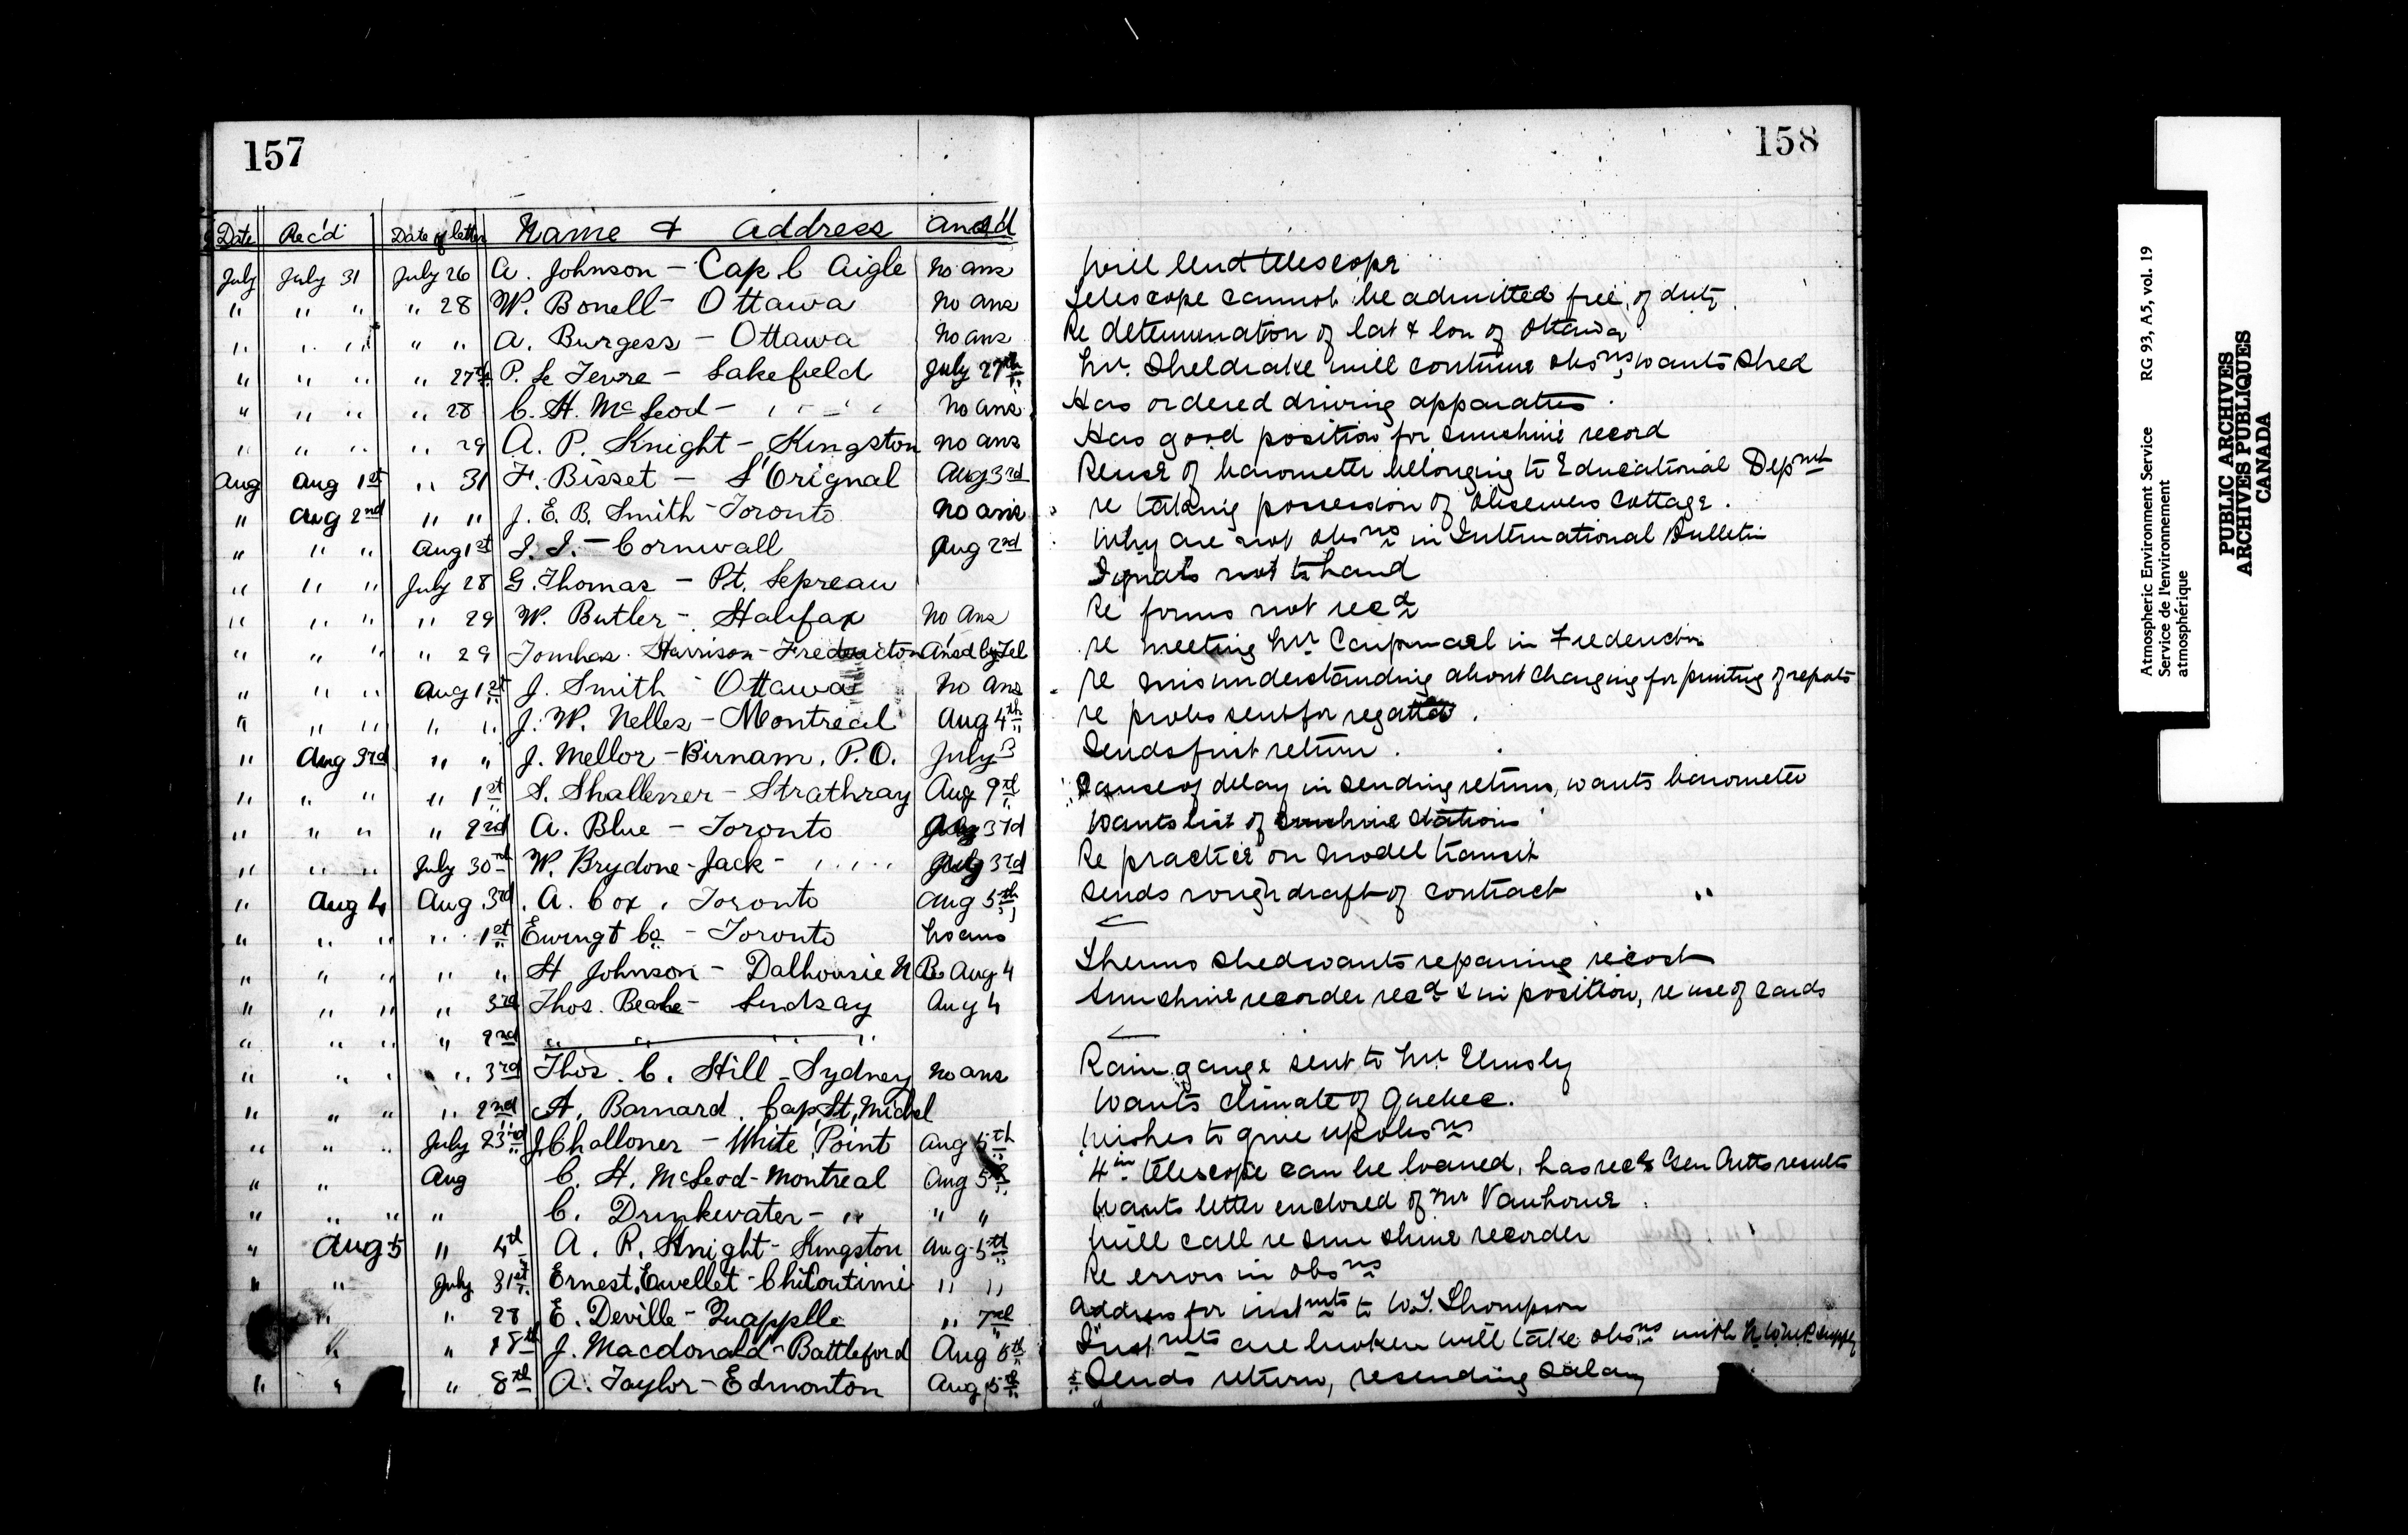 157
Date Rec'd Date of letter Name & Address Ansd
July July 31 July 26 A. Johnson - Cap l Aigle No ans
" " " " 28 W. Bonell - Ottawa No ans
" " " " " A. Burgess - Ottawa No ans
" " " " 27th P. Le Fevre - Lakefield July 27th
" " " " 28 C. H. McLeod - " " No ans
" " " " 29 A. P. Knight - Kingston No ans
Aug Aug 1st " 31 F. Bisset - L'Orignal Aug 3rd
" Aug 2nd " " J. E. B. Smith - Toronto No ans
" " " Aug 1st - Cornwall Aug 2nd
" " " July 28 G. Thomas - Pt. Lepreau
" " " " 29 W. Butler - Halifax No Ans
" " " " 29 Tomhas Harrison - Fredericton Ansd by Tel
" " " Aug 1st J. Smith - Ottawa No Ans
" " " " " J. W. Nelles - Montreal Aug 4th
" Aug 3rd " " J. Mellor - Birnam, P.O. July 3
" " " " 1st S. - Strathray Aug 9th
" " " " 2nd A. Blue - Toronto Aug 3rd
" " " July 30th W. Brydone-Jack - " " July 3rd
" Aug 4 Aug 3rd A. Cox, Toronto Aug 5th
" " " " 1st Ewing & Co - Toronto No ans
" " " " " H Johnson - Dalhousie N B. Aug 4
" " " " 3rd Thos. Beake - Lindsay Aug 4
" " " " 2nd " " " "
" " " " 3rd Thos. C. Hill - Sydney No ans
" " " " 2nd A. Barnard, Cap St, Michel
" " " July 23rd J Challoner - White Point Aug 5th
" " Aug C. H. McLeod - Montreal Aug 5th
" " " " C. Drinkwater - " " "
" Aug 5 " 4th A. P. Knight - Kingston Aug 5th
" " July 31st Ernest Ewellet - Chicoutimi " "
" " " 28 E. Deville - Quapplle " 7
" " " 18th J. Macdonald - Battleford Aug 6th
" " " 8th A. Taylor - Edmonton Aug 5th
158
Will lend telescope
Telescope cannot be admitted free of duty.
Re determination of lat & lon of Ottawa
Mr. Sheldrake will continue obsns, wants shed
Has ordered driving apparatus.
Has good position for sunshine record
Re use of barometer belonging to Educational Depmt
re taking possession of observers cottage.
Why are not obsns in International Bulletin
Signals not to hand
Re forms not recd
re meeting Mr. Carpmael in Fredericton
re misunderstanding about charging for printing of reports
re probs sent for regatta.
Sends first return.
Cause of delay in sending returns, wants barometer
Wants list of sunshine stations
Re practice on model transit
Sends rough draft of contract "
Thermo shed wants repairing re cost
Sunshine recorder recd & in position, re use of cards
Rain gauge sent to Mr Elmsly
Wants climate of Quebec.
Wishes to give up obsns
4 in telescope can be loaned, has recd Gen results
Wants letter enclosed of Mr Vanhorne
Will call re sun shine recorder
Re errors in obsns
Address for instmts to W.T. Thompson
Instmts are broken will take obsns with
Sends return, re sending salary
Atmospheric Environment Service RG 93, A5, vol. 19
Service de l'environnement
atmosphérique
PUBLIC ARCHIVES
ARCHIVES PUBLIQUES
CANADA